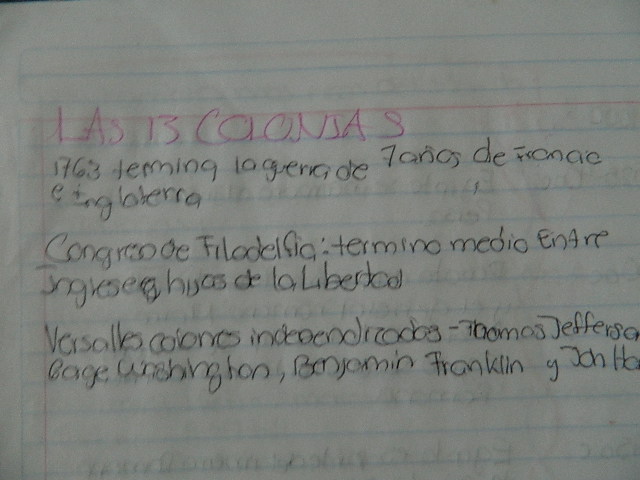 LAS 13 COLONIAS
1763 termina la guerra de 7 años de Francie
e Inglaterra
Congreso de Filadelfia: termino medio Entre
Ingleses e hijos de la Libertad
Versalles colones independizados - Thomas Jefferso
Washington, Benjamin Franklin y Jon Ha